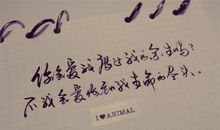 你会爱我胜过我的余生吗?
不我会爱你到我生命的尽头..
I ♥ ANIMAL